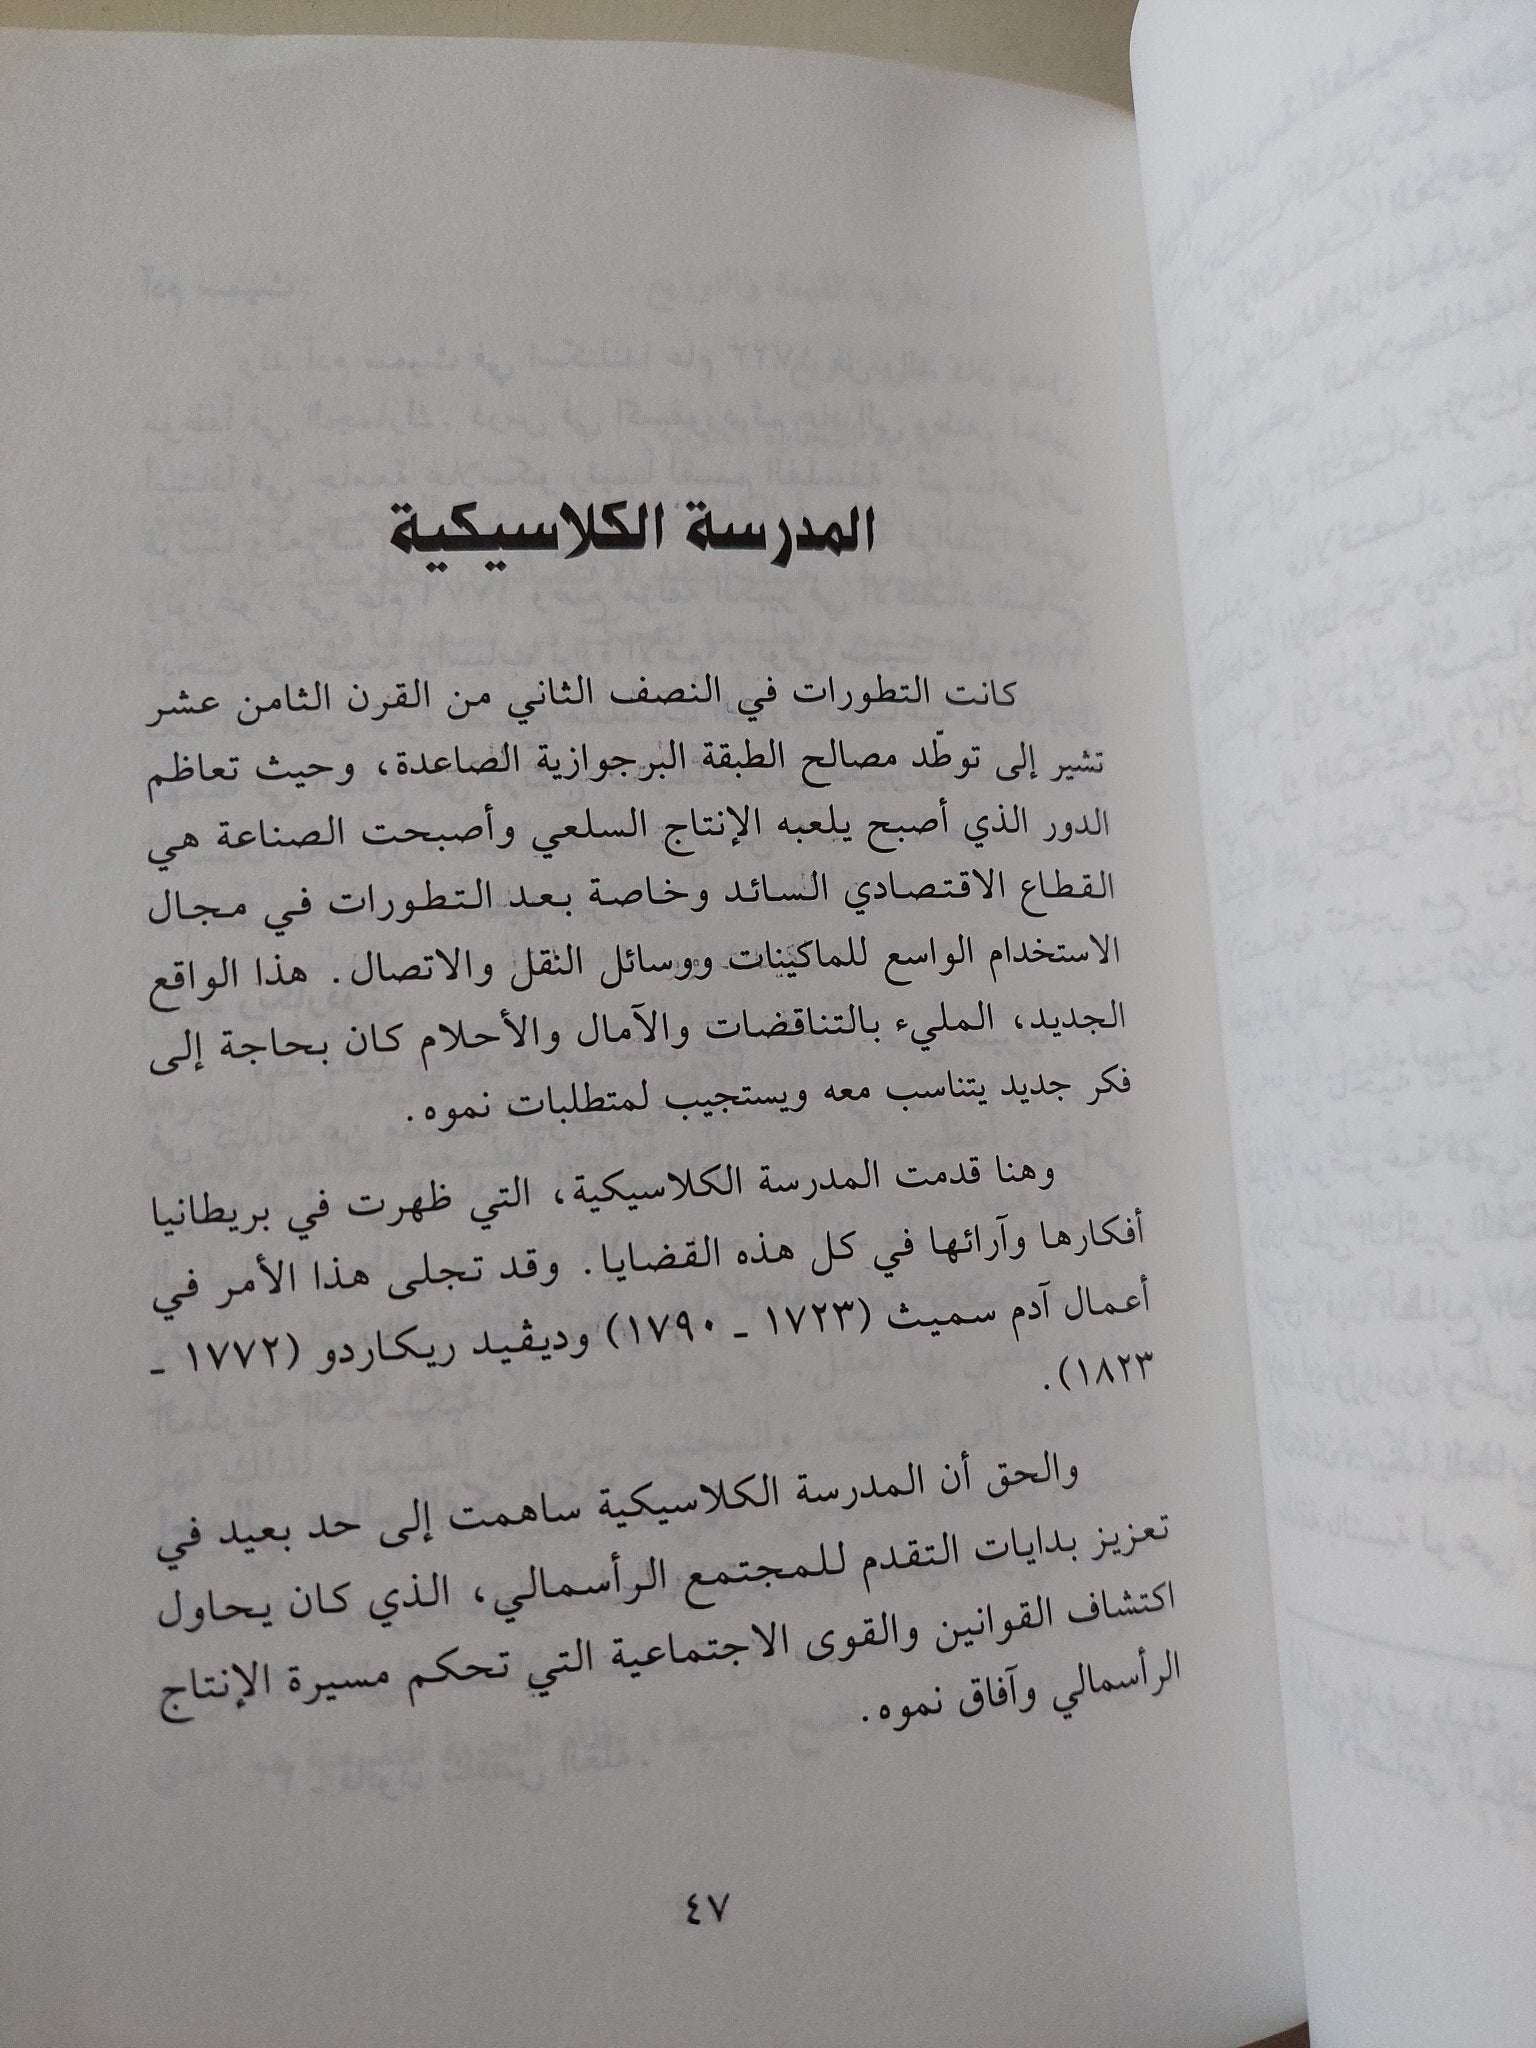 المدرسة الكلاسيكية
كانت التطورات في النصف الثاني من القرن الثامن عشر
تشير إلى توطّد مصالح الطبقة البرجوازية الصاعدة، وحيث تعاظم
الدور الذي أصبح يلعبه الإنتاج السلعي وأصبحت الصناعة هي
القطاع الاقتصادي السائد وخاصة بعد التطورات في مجال
الاستخدام الواسع للماكينات ووسائل النقل والاتصال. هذا الواقع
الجديد، المليء بالتناقضات والآمال والأحلام كان بحاجة إلى
فكر جديد يتناسب معه ويستجيب لمتطلبات نموه.
وهنا قدمت المدرسة الكلاسيكية، التي ظهرت في بريطانيا
أفكارها وآرائها في كل هذه القضايا. وقد تجلى هذا الأمر في
أعمال آدم سميث (١٧٢٣ ـ ١٧٩٠) وديڤيد ريكاردو (١٧٧٢ ـ
١٨٢٣).
والحق أن المدرسة الكلاسيكية ساهمت إلى حد بعيد في
تعزيز بدايات التقدم للمجتمع الرأسمالي، الذي كان يحاول
اكتشاف القوانين والقوى الاجتماعية التي تحكم مسيرة الإنتاج
الرأسمالي وآفاق نموه.
٤٧